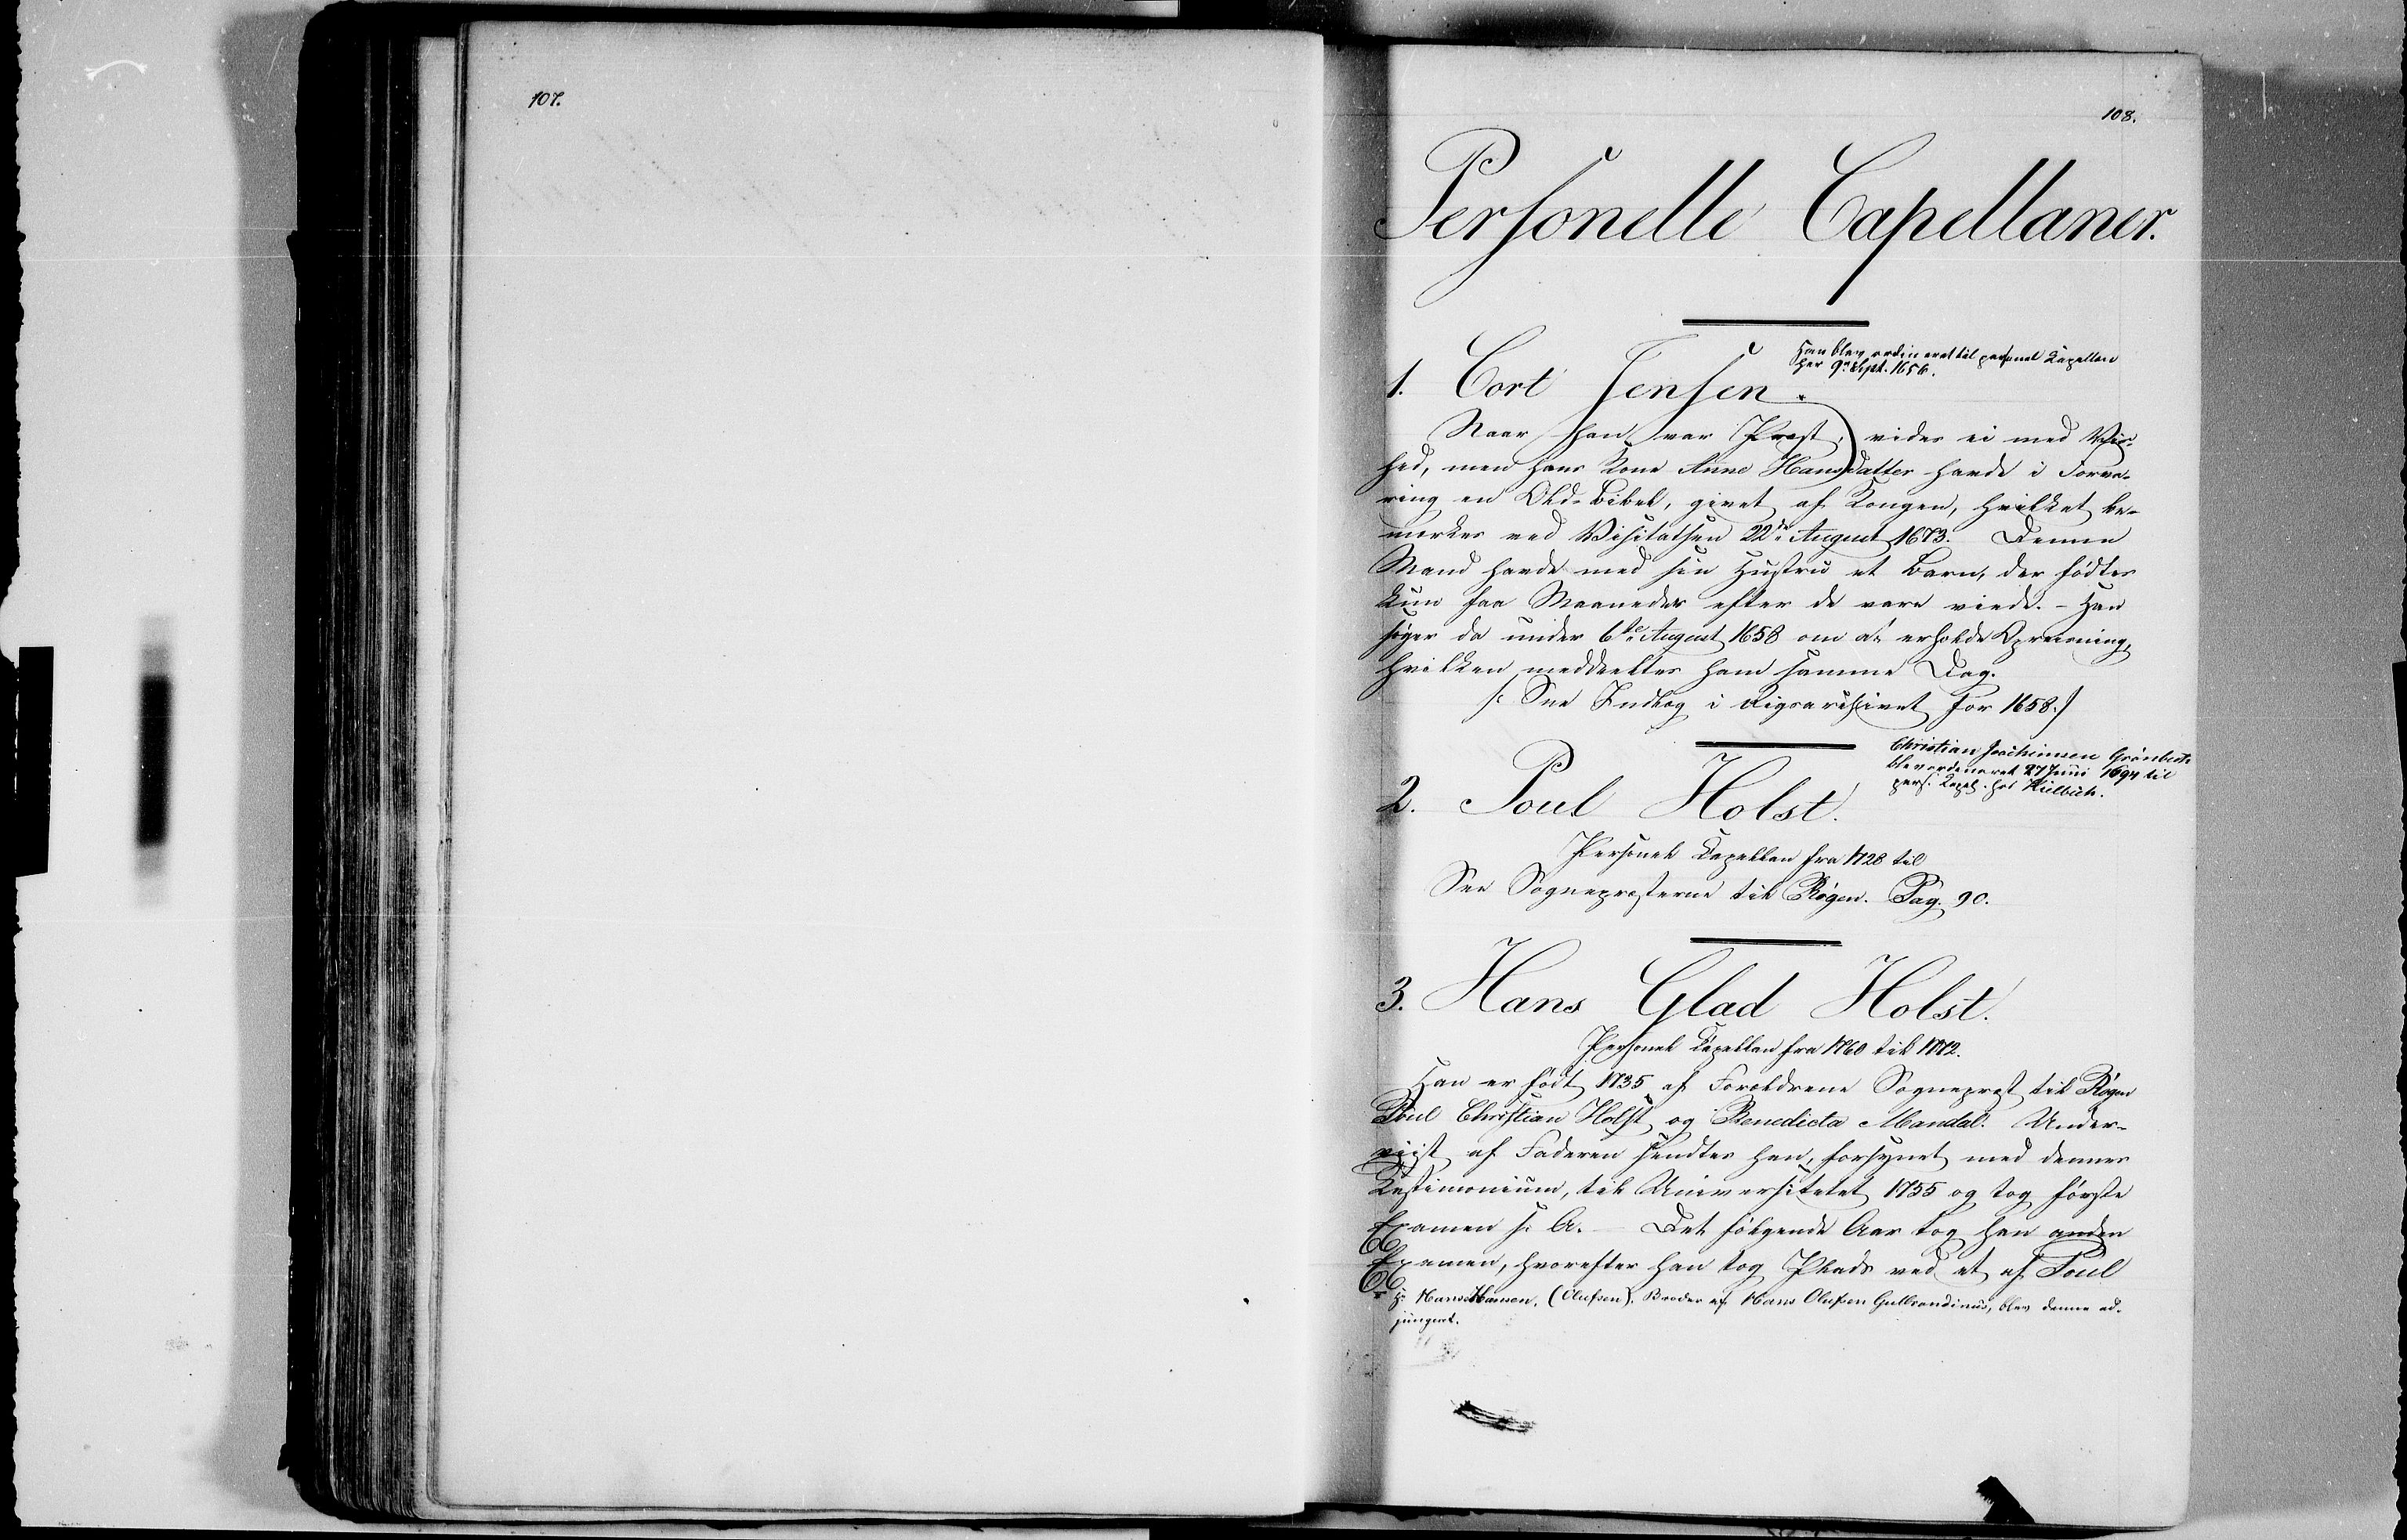 107.
108.
Personelle Capellaner.
Han blev ordineret til personel Kapellan
her 9de Sept. 1656.
1. Cort Jensen.
Naar han var Præst, vides ei med Vis-
hed, men hans Kone Anne Hansdatter havde i Forva-
ring en Old-Bibel, givet af Kongen, hvilket be-
mærkes ved Visitatsen 22de August 1673. Denne
Mand havde med sin Hustru et Barn, der fødtes
kun faa Maaneder efter de vare viede. – Han
søger da under 6te August 1658 om at erholde Opreisning,
hvilken meddeeltes ham samme Dag.
/: See Indlæg i Rigsarchivet for 1658 :/
Christian Jochimsen
blev ordineret 27 Juni 1694 til
pers. Kapel. hos Hielbich.
2. Poul Holst.
Personel Kapellan fra 1728 til
See Sognepræsterne til Røgen. Pag. 90.
3. Hans Glad Holst.
Personel Kapellan fra 1760 til 1772.
Han er født 1735 af Forældrene Sognepræst til Røgen
Poul Christian Holst og Benedicta Mandal. Under-
viist af Faderen sendtes han, forsynet med dennes
Testimonium, til Universitetet 1755 og tog første
Examen s. A. – Det følgende Aar tog han anden
Examen, hvorefter han tog Plads ved et af Poul
Hr. Hans Hansen. (Olufsen). Broder af Hans Olufsen Gulbrandinus, blev denne ad-
jungeret.